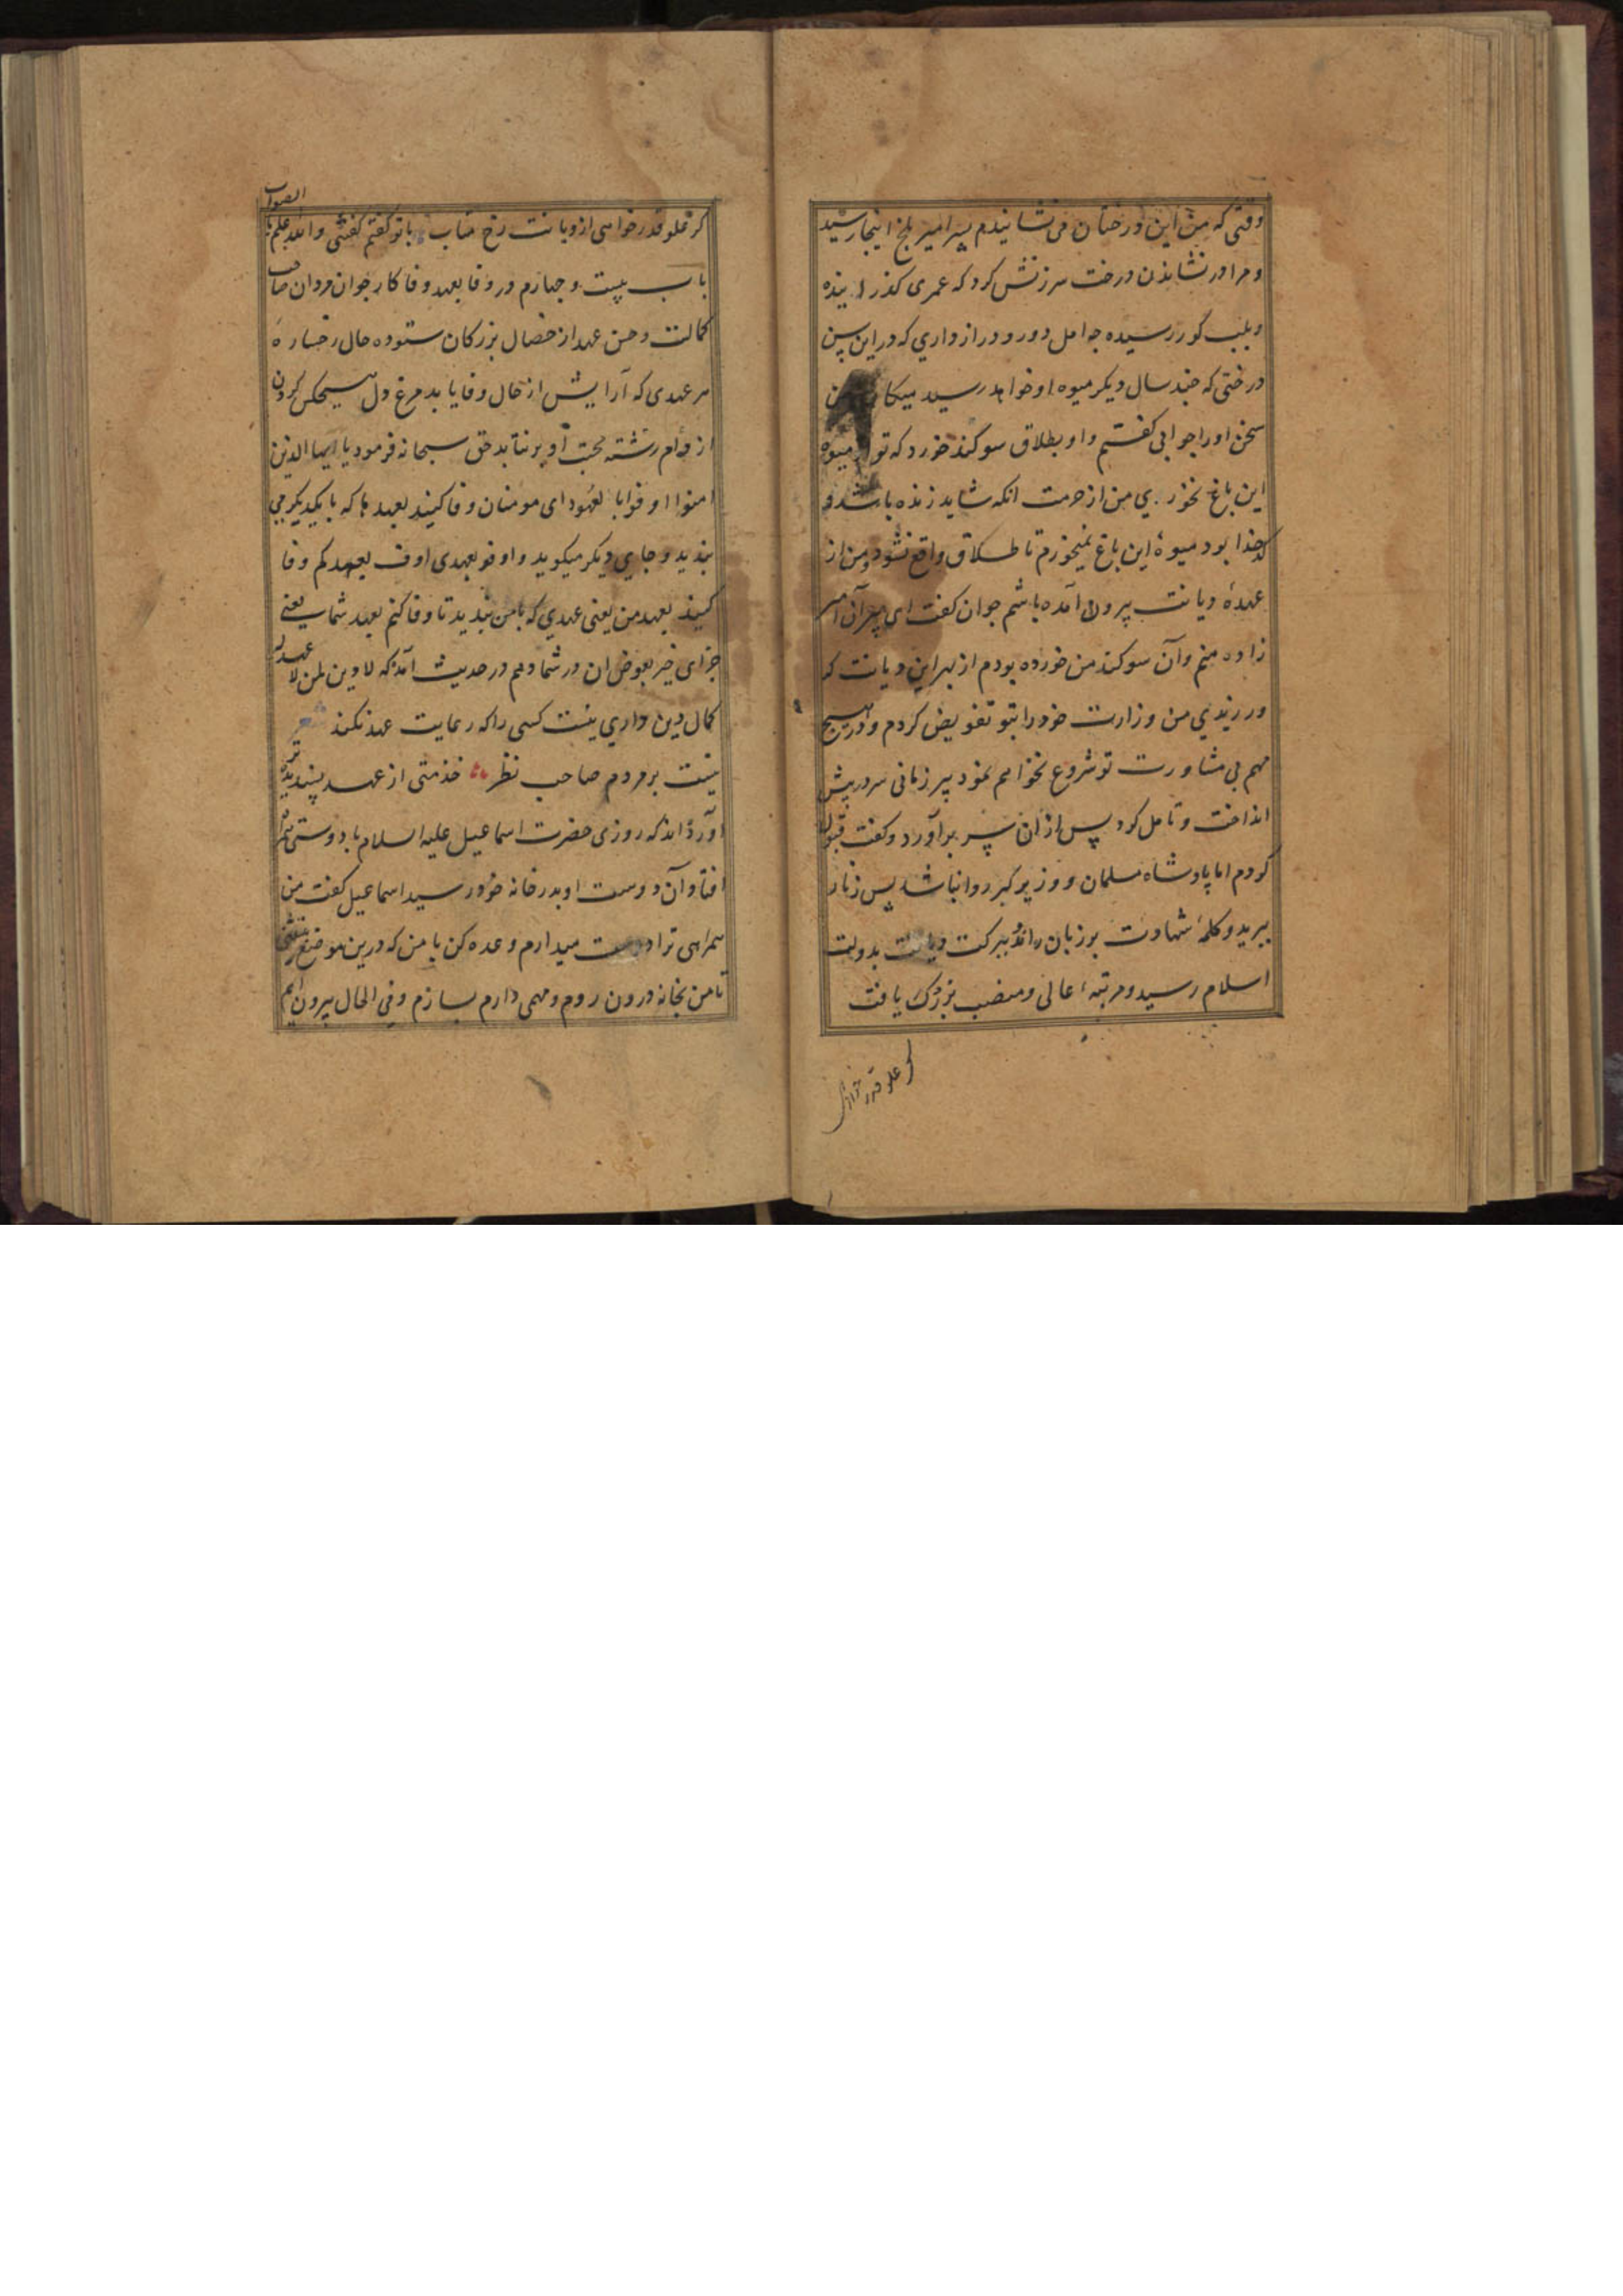 وقتی که من این درختان می نشانیدم پسر امیر بلخ اینجا رسید
و مرا در نشاندن درخت سرزنش کرد که عمری کذرانیده
و بلب کور رسیده چه امل دور و دراز داری که در این سن
درختی که چند سال دیکر میوه او خواهد رسید میکاری من
سخن او را جوابی کفتم و او بطلاق سوکند خورد که تو از میوه
این باغ نخوری من از حرمت انکه شاید زنده باشد و
کدخدا بود میوهٔ این باغ نمیخورم تا طلاق واقع نشود و من از
عهدهٔ دیانت بیرون آمده باشم جوان کفت ای پیر آن امیر
زاده منم و آن سوکند من خورده بودم از بهر این دیانت که
ورزیدی من وزارت خود را بتو تفویض کردم و در هیچ
مهم بی مشاورت تو شروع نخواهم نمود پیر زمانی سر در پیش
انداخت و تامل کرد پس ازان سر برآورد و کفت قبول
کردم اما پادشاه مسلمان و وزیر کبر روا نباشد پس زنار
ببرید و کلمهٔ شهادت بر زبان راند و ببرکت دیانت بدولت
اسلام رسید و مرتبهٔ عالی و منصب بزرک یافت
کر علو قدر خواهی
کر علو قدر خواهی از دیانت رخ متاب با تو کفتم کفتنی والله اعلم با
الصواب
باب بیست و چهارم در وفا بعهد وفا کار جوان مردان صاحب
کمالت و حسن عهد از خصال بزرکان ستوده حال رخساره
هر عهدی که آرایش از خال وفا یابد مرغ دل هیچکس کردن
از دام رشته محبت او برنتابد حق سبحانه فرمود یا ایها الذین
امنوا اوفوا با لعهود ای مومنان وفا کنید بعهدها که با یکدیکر می
بندید و جای دیکر میکوید و اوفو بعهدی اوف بعهدکم وفا
کنید بعهد من یعنی عهدی که با من بندید تا وفا کنم بعهد شما یعنی
جزای خیر بعوض ان در شما دهم در حدیث آمده که لا دین لمن لا عهد له
کمال دین داری نیست کسی را که رعایت عهد نکند شعر
نیست بر مردم صاحب نظر خدمتی از عهد پسندیده تر
آورده اند که روزی حضرت اسماعیل علیه السلام با دوستی همراه
افتاد آن دوست او بدر خانه خود رسید اسماعیل کفت من
همراهی ترا دوست میدارم وعده کن با من که درین موضع بنشینی
تا من بخانه درون روم و مهمی دارم بسازم و فی الحال بیرون آیم